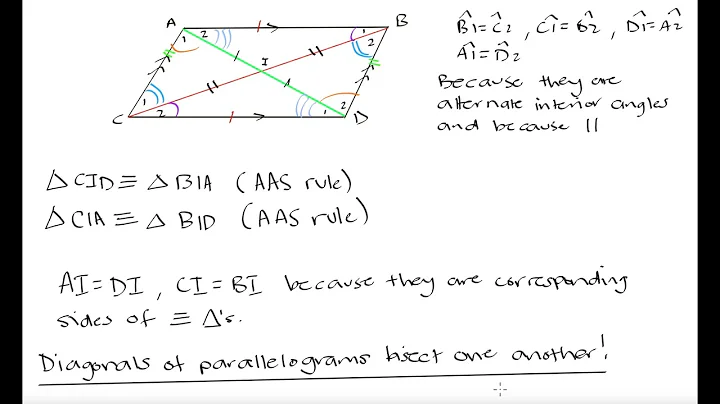 A
B
1 2
1
2
I
1
2
1
2
C
D
B̂1=Ĉ2 , Ĉ1=B̂2 , D̂1=Â2
Â1=D̂2
Because they are
alternate interior angles
and because ||
△CID≡△BIA (AAS rule)
△CIA≡△BID (AAS rule)
AI=DI , CI=BI because they are corresponding
sides of ≡ △'s.
Diagonals of parallelograms bisect one another!